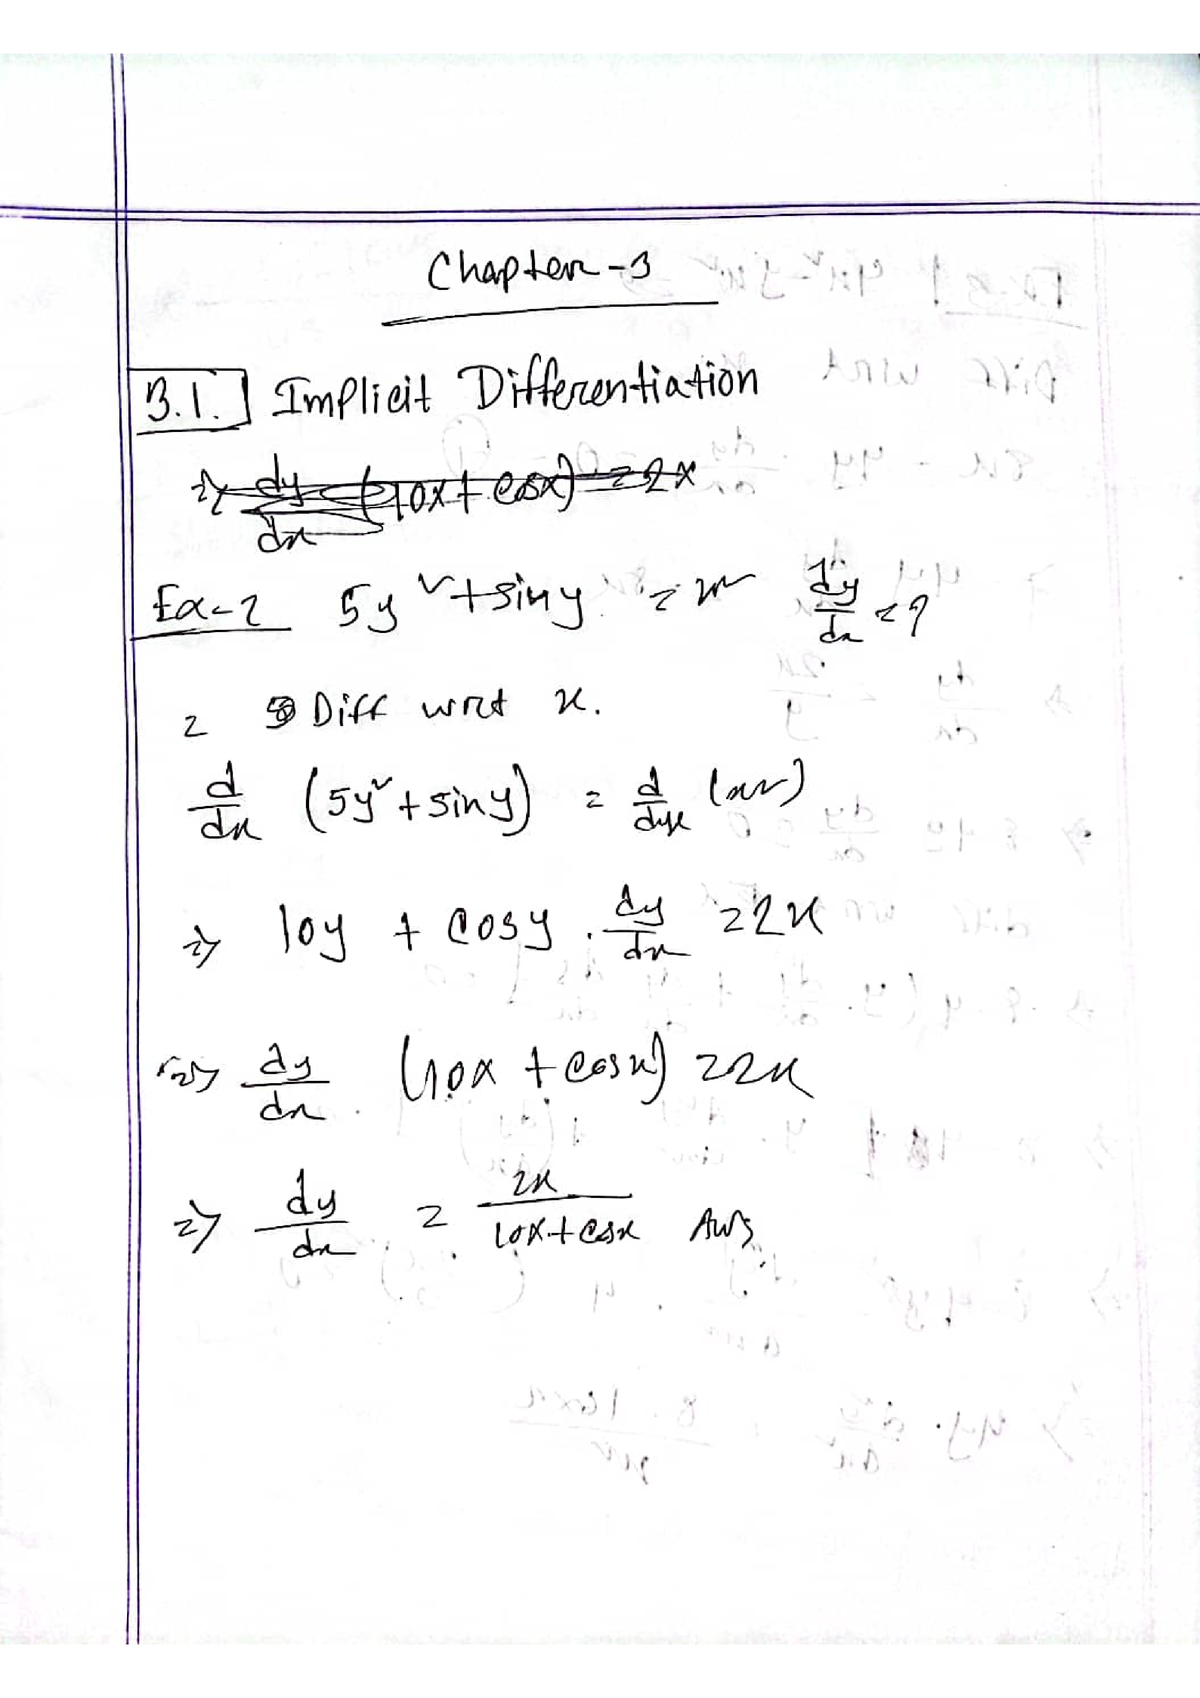 Chapter-3
3.1. Implicit Differentiation
⇒ dy/dx (10x + cosx) = 2x
Ex-2 5y² + siny = x² dy/dx = ?
= Diff wrt x.
d/dx (5y² + siny) = d/dx (x²)
⇒ 10y + cosy . dy/dx = 2x
⇒ dy/dx . (10x + cosx) = 2x
⇒ dy/dx = 2x/10x + cosx Ans